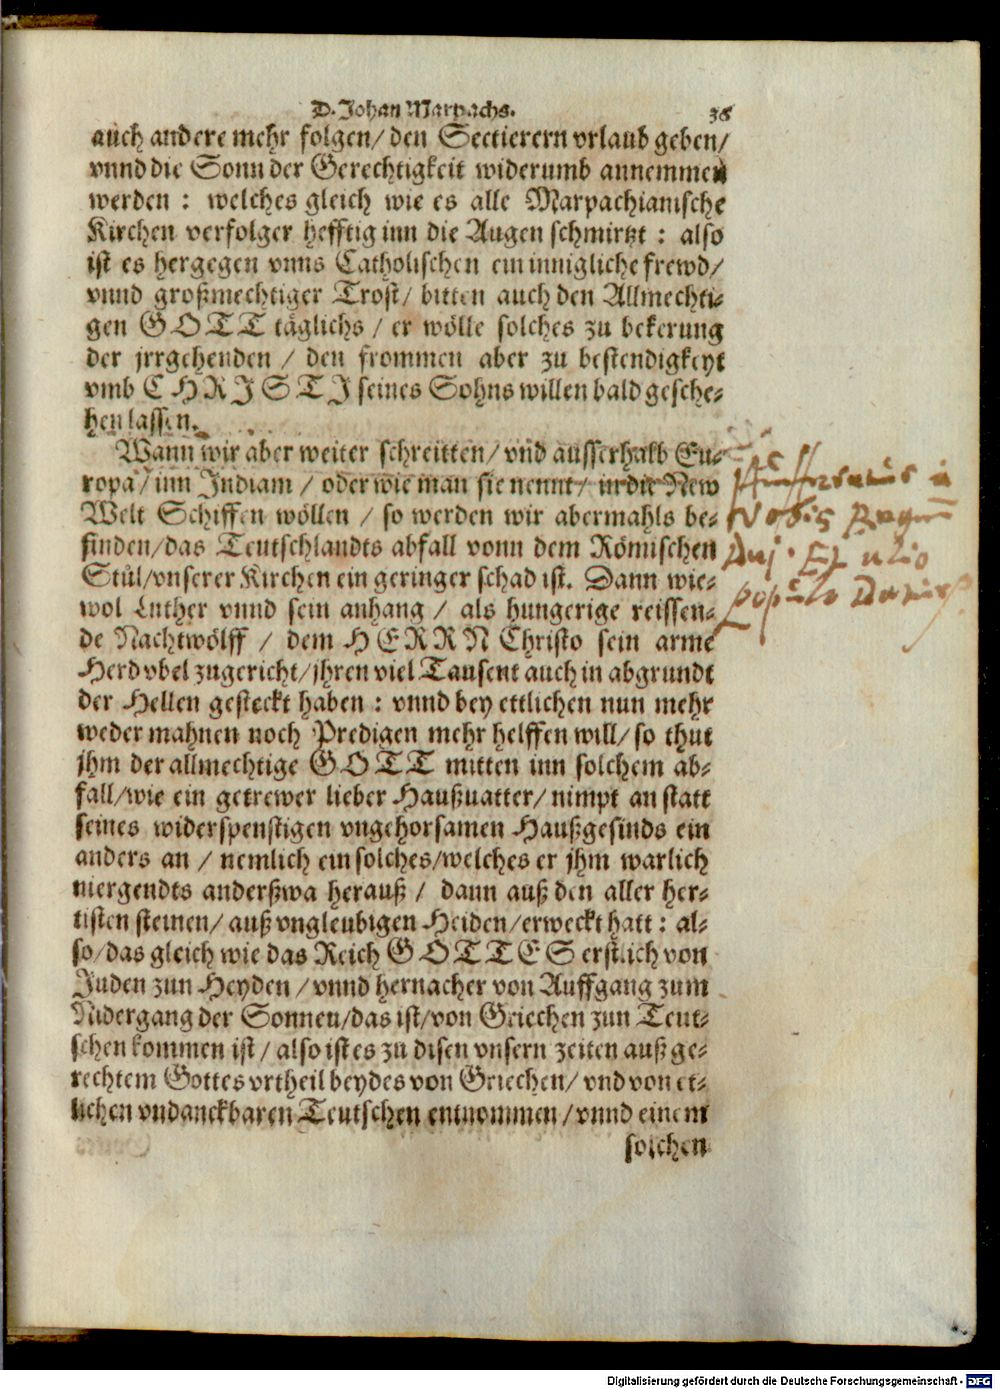 D. Johan Marpachs. 36
auch andere mehr folgen/ den Sectierern vrlaub geben/
vnnd die Sonn der Gerechtigkeit widerumb annemmen
werden : welches gleich wie es alle Marpachianische
Kirchen verfolger hefftig inn die Augen schmirtzt : also
ist es hergegen vnns Catholischen ein innigliche frewd/
vnnd großmechtiger Trost/ bitten auch den Allmechti⸗
gen GOTT täglichs / er wölle solches zu bekerung
der jrrgehenden / den frommen aber zu bestendigkeyt
vmb CHRJSTJ seines Sohns willen bald gesche⸗
hen lassen.
Wann wir aber weiter schreitten/ vnd ausserhalb Eu⸗
ropa/ inn Jndiam / oder wie man sie nennt/ in die New
Welt Schiffen wöllen / so werden wir abermahls be⸗
finden/das Teutschlandts abfall vonn dem Römischen
Stůl/vnserer Kirchen ein geringer schad ist. Dann wie⸗
wol Luther vnnd sein anhang / als hungerige reissen⸗
de Nachtwölff / dem HERRN Christo sein arme
Herd vbel zugericht/jhren viel Tausent auch in abgrundt
der Hellen gesteckt haben : vnnd bey ettlichen nun mehr
weder mahnen noch Predigen mehr helffen will/ so thut
jhm der allmechtige GOTT mitten inn solchem ab⸗
fall/wie ein getrewer lieber Haußuatter/ nimpt an statt
seines widerspenstigen vngehorsamen Haußgesinds ein
anders an / nemlich ein solches/welches er jhm warlich
niergendts anderßwa herauß / dann auß den aller her⸗
tisten steinen/ auß vngleubigen Heiden/erweckt hatt : al⸗
so/das gleich wie das Reich GOTTES erstlich von
Juden zun Heyden / vnnd hernacher von Auffgang zum
Nidergang der Sonnen/das ist/von Griechen zun Teut⸗
schen kommen ist / also ist es zu disen vnsern zeiten auß ge⸗
rechtem Gottes vrtheil beydes von Griechen/ vnd von et⸗
lichen vndanckbaren Teutschen entnommen / vnnd einem
solchen
à
Vobis Regnū
Dei. Et
populo
Digitalisierung gefördert durch die Deutsche Forschungsgemeinschaft - DFG